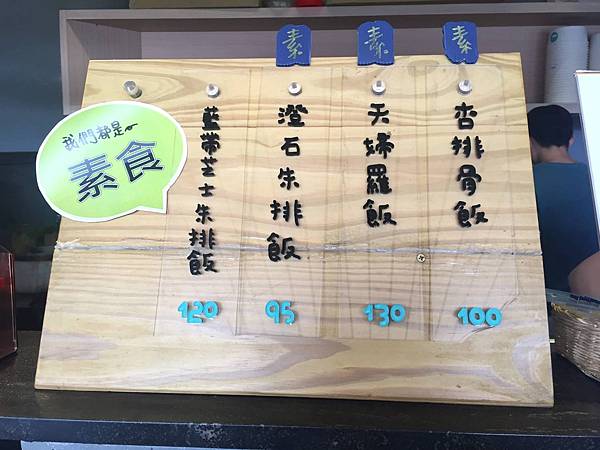 我們都是
素食
素
素
素
杏排骨飯
100
天婦羅飯
130
澄石朱排飯
95
藍帶芝士朱排飯
120